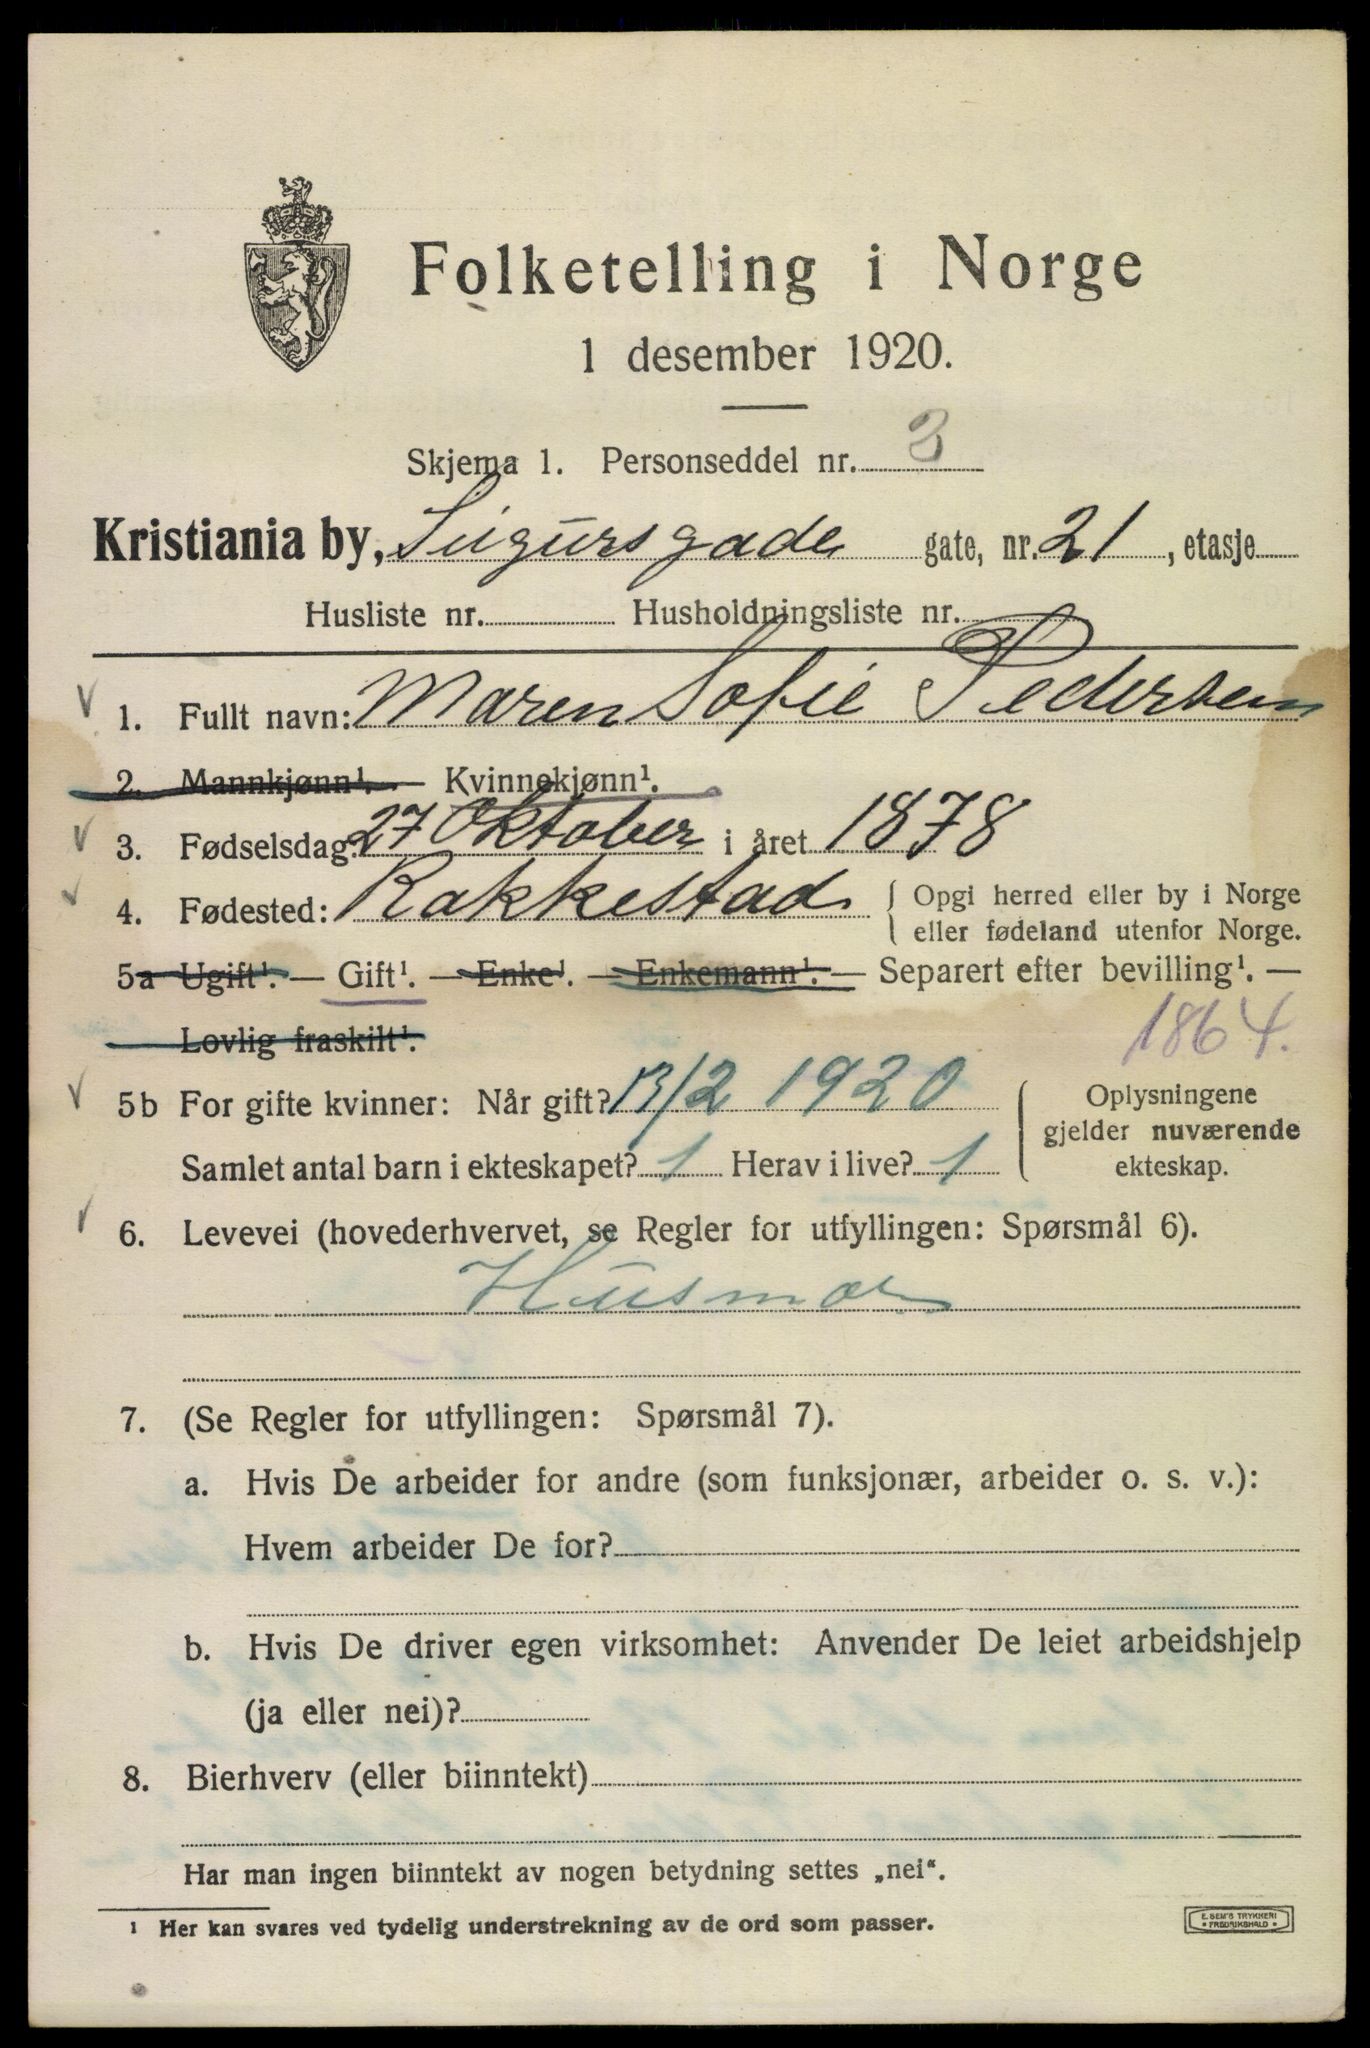 Folketelling i Norge
1 desember 1920.
Skjema 1. Personseddel nr. 3
Kristiania by, Sigursgade gate, nr. 21, etasje
Husliste nr. Husholdningsliste nr.
1. Fullt navn: Maren Sofie Pedersen
2. Mannkjønn¹. — Kvinnekjønn¹.
3. Fødselsdag: 27 Oktober i året 1878
4. Fødested: Rakkestad { Opgi herred eller by i Norge
eller fødeland utenfor Norge.
5a Ugift¹. — Gift¹. — Enke¹. — Enkemann¹. — Separert efter bevilling¹. —
Lovlig fraskilt¹.
1864.
5b For gifte kvinner: Når gift? 13/2 1920
Samlet antal barn i ekteskapet? 1 Herav i live? 1
Oplysningene
gjelder nuværende
ekteskap.
6. Levevei (hovederhvervet, se Regler for utfyllingen: Spørsmål 6).
Husmor
7. (Se Regler for utfyllingen: Spørsmål 7).
a. Hvis De arbeider for andre (som funksjonær, arbeider o. s. v.):
Hvem arbeider De for?
b. Hvis De driver egen virksomhet: Anvender De leiet arbeidshjelp
(ja eller nei)?
8. Bierhverv (eller biinntekt)
Har man ingen biinntekt av nogen betydning settes „nei“.
¹ Her kan svares ved tydelig understrekning av de ord som passer.
E. SEM'S TRYKKERI
FREDRIKSHALD